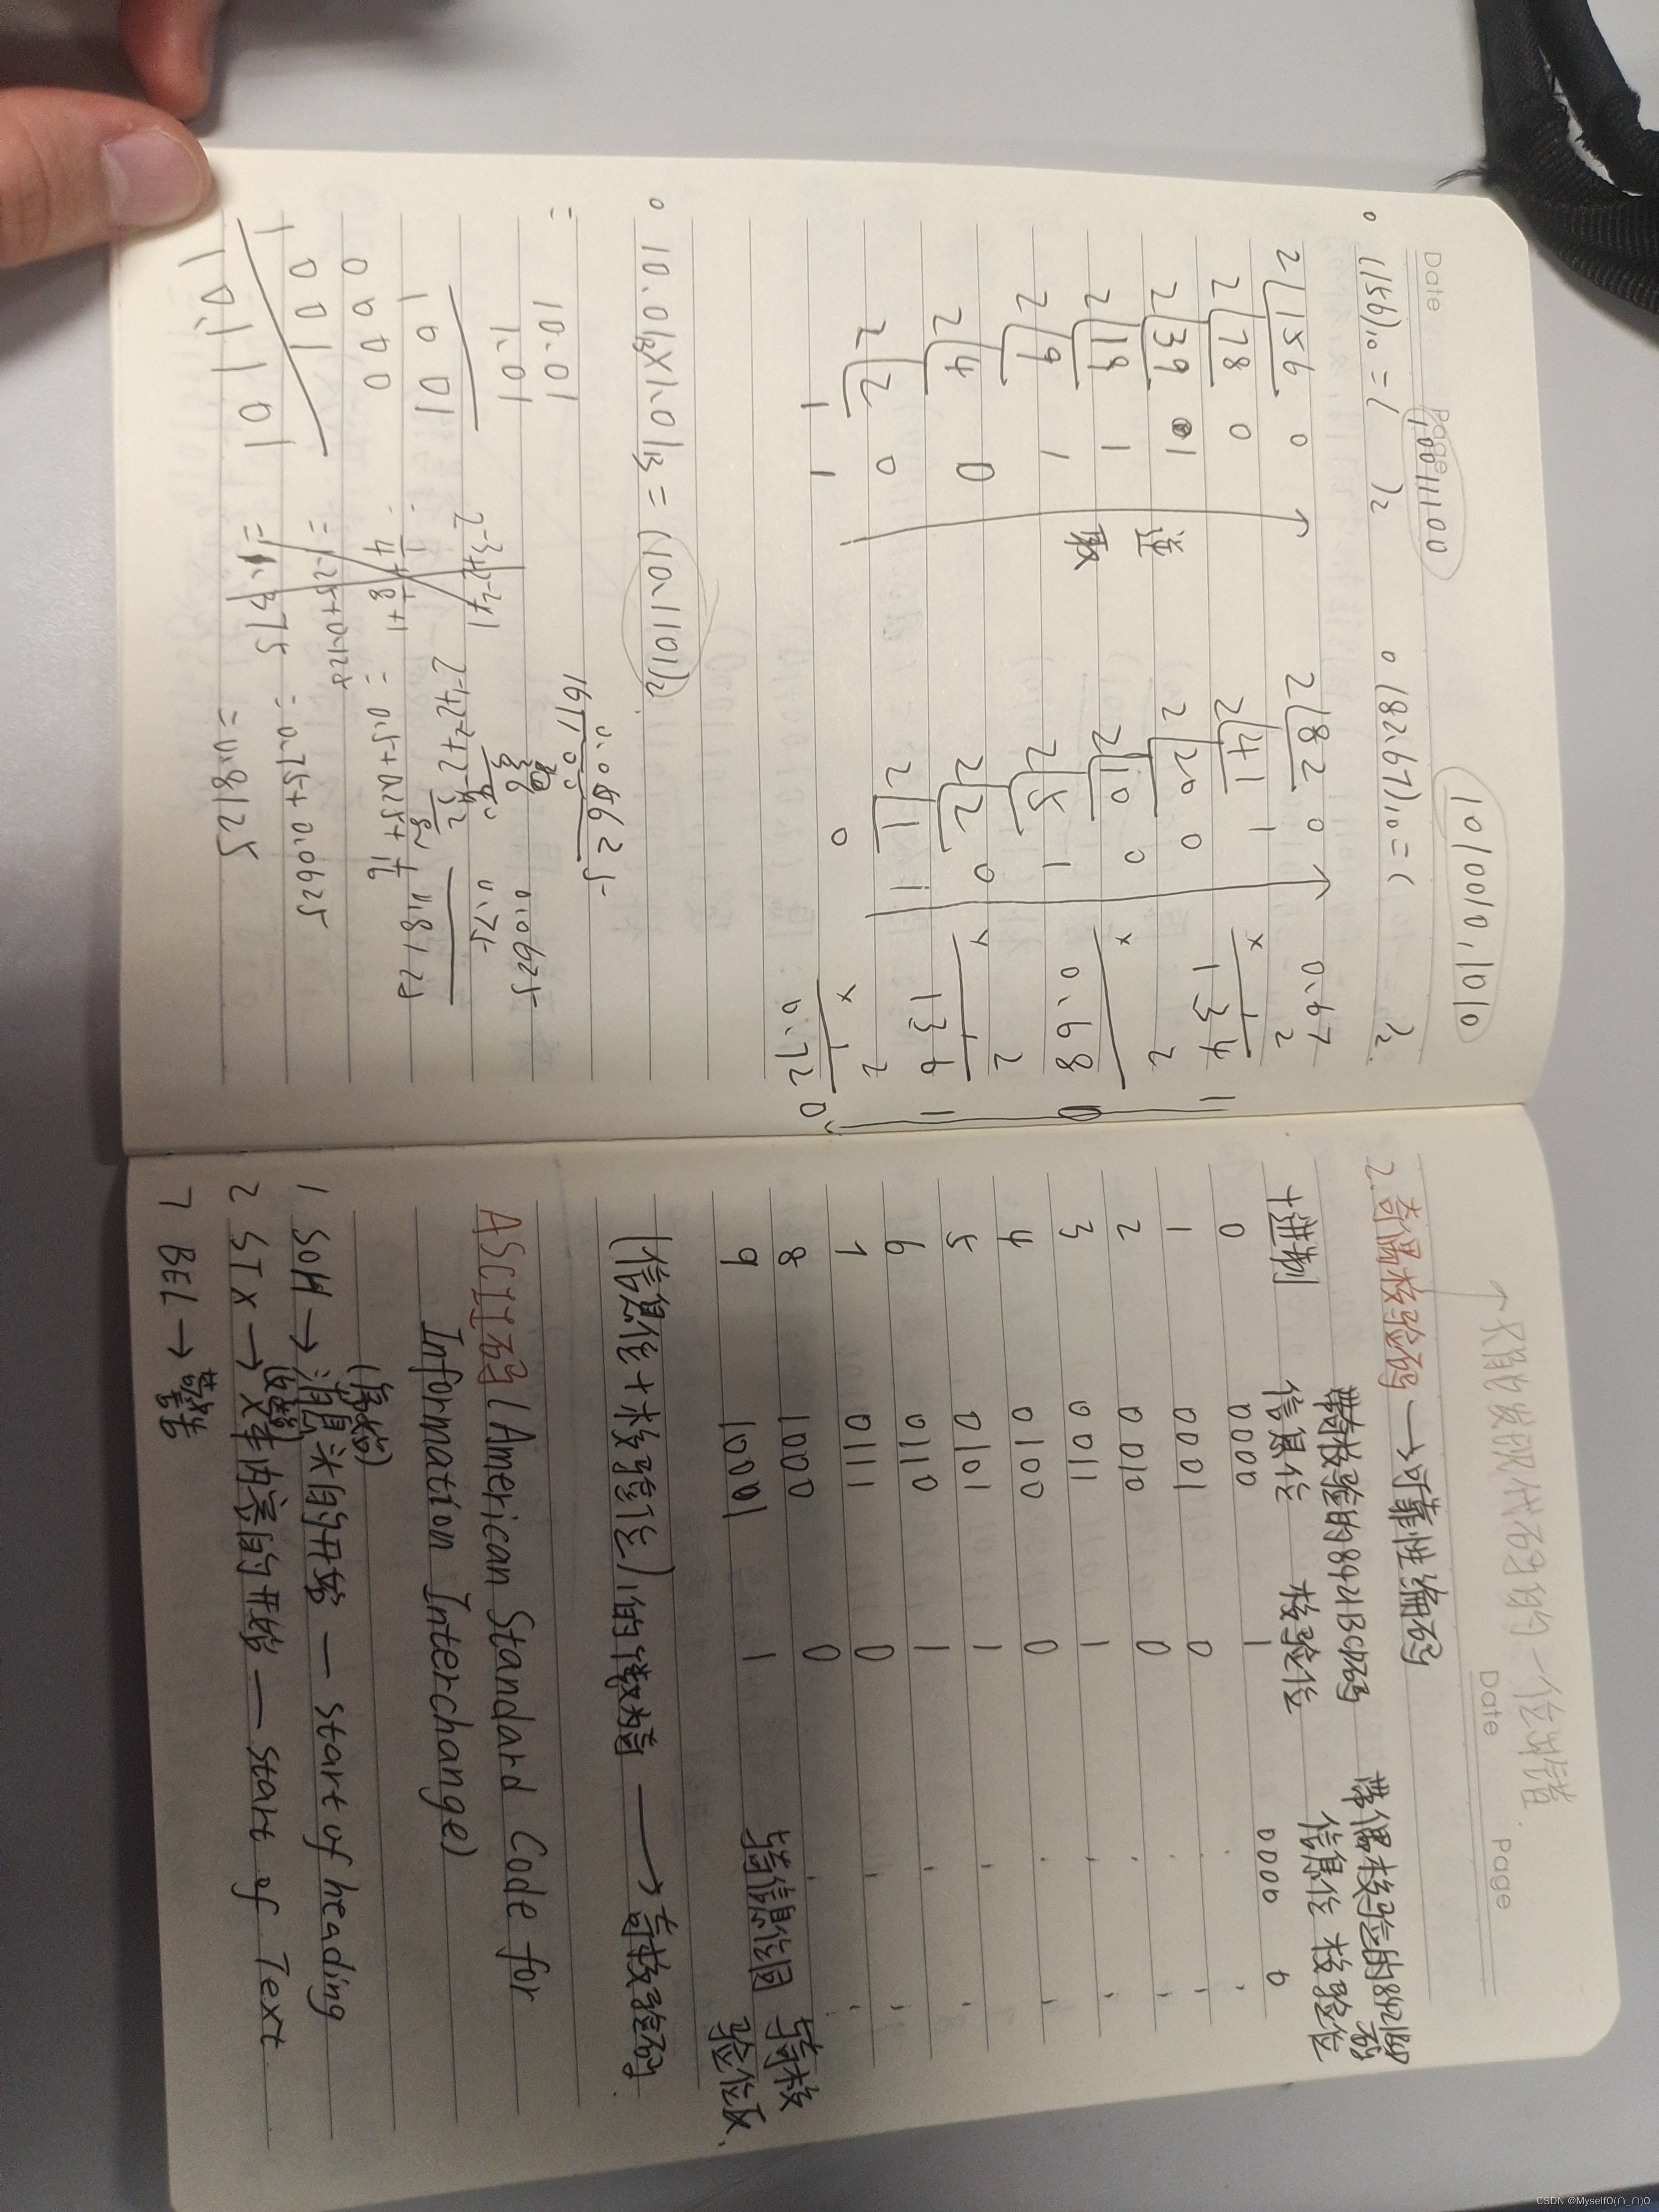 Date
Page
(156)₁₀ = (10011100)₂
2 156 0
2 78 0
2 39 1
2 19 1
2 9 1
2 4 0
2 2 0
1 1
逆
取
(82.67)₁₀ = (1010010.1010)₂
2 82 0
2 41 1
2 20 0
2 10 0
2 5 1
2 2 0
2 1 1
0
0.67
× 2
1.34 1
× 2
0.68 0
× 2
1.36 1
× 2
0.72 0
10.01×1.01B = (10.1101)₂
10.01
10.1
1001
0000
1001
101101
2⁻³+2⁻⁴
= 1.375
2⁻⁴+2⁻²+2⁻¹
= 0.5+0.25+1/16
= 0.75+0.0625
= 0.8125
0.8125
0.75
0.0625
Date
Page
只能发现代码的一位出错
2.奇偶校验码 → 可靠性编码
带奇校验的8421BCD码
带偶校验的8421BCD码
十进制 信息位 校验位 信息位 校验位
0 0000 1 0000 0
1 0001 0
2 0010 0
3 0011 1
4 0100 0
5 0101 1
6 0110 1
7 0111 0
8 1000 0
9 1001 1
与奇信息位同
与奇校验位反.
(信息位+校验位)1的个数为奇 → 奇校验码.
ASCII码(American Standard Code for
Information Interchange)
(信息)
1 SOH → 消息头的开始 — start of heading
2 STX → 文本内容的开始 — start of Text
7 BEL → 警告
CSDN @MyselfO(∩_∩)O